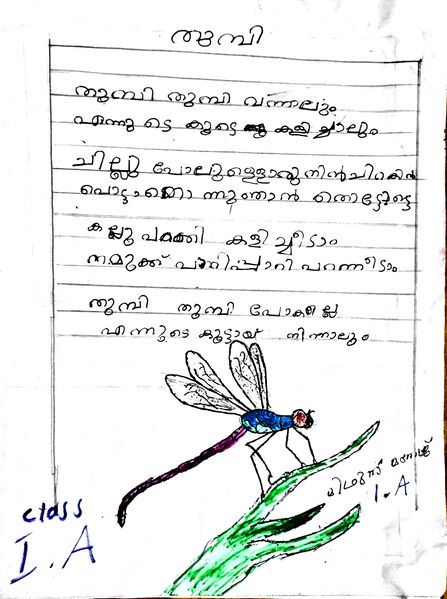 തുമ്പി
തുമ്പി തുമ്പി വന്നാലും
എന്നുടെ കൂടെ കളിച്ചാലും
ചില്ലു പോലുള്ളൊരു നിൻചിറകിൽ
പൊട്ടാതൊന്നുഞാൻ തൊട്ടോട്ടെ
കല്ലുപറക്കി കളിച്ചീടാം
നമുക്ക് പാറിപ്പാറി പറന്നീടാം
തുമ്പി തുമ്പി പോകല്ലെ
എന്നുടെ കൂട്ടായ് നിന്നാലും
I.A
class
I.A